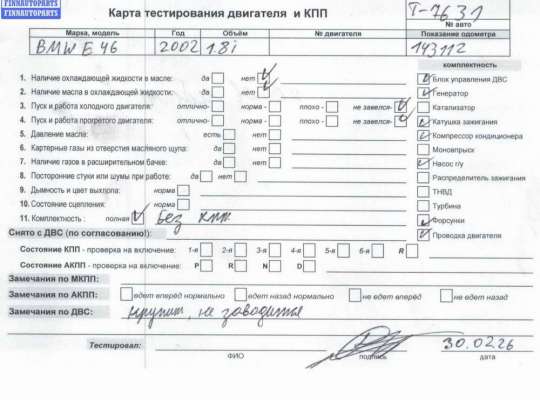 FINNAUTOPARTS
FINNAUTOPARTS
Карта тестирования двигателя и КПП
T-7631
№ авто
Марка, модель Год Объём № двигателя Показание одометра
BMW E46 2002 1.8i 143112
комплектность
1. Наличие охлаждающей жидкости в масле: да нет
Блок управления ДВС
2. Наличие масла в охлаждающей жидкости: да нет
Генератор
3. Пуск и работа холодного двигателя: отлично- норма - плохо - не завелся-
Катализатор
4. Пуск и работа прогретого двигателя: отлично- норма - плохо - не завелся-
Катушка зажигания
5. Давление масла: есть нет
Компрессор кондиционера
6. Картерные газы из отверстия масляного щупа: да нет
Моновпрыск
7. Наличие газов в расширительном бачке: да нет
Насос г/у
8. Посторонние стуки или шумы при работе: да нет
Распределитель зажигания
9. Дымность и цвет выхлопа: норма
ТНВД
10. Состояние сцепления: норма
Турбина
11. Комплектность : полная Без кпп
Форсунки
Снято с ДВС (по согласованию!):
Проводка двигателя
Состояние КПП - проверка на включение: 1-я 2-я 3-я 4-я 5-я 6-я R
Состояние АКПП - проверка на включение: P R N D
Замечания по МКПП:
Замечания по АКПП: едет вперёд нормально едет назад нормально не едет вперёд не едет назад
Замечания по ДВС: крутит, не заводится
Тестировал: 30.02.26
ФИО подпись дата